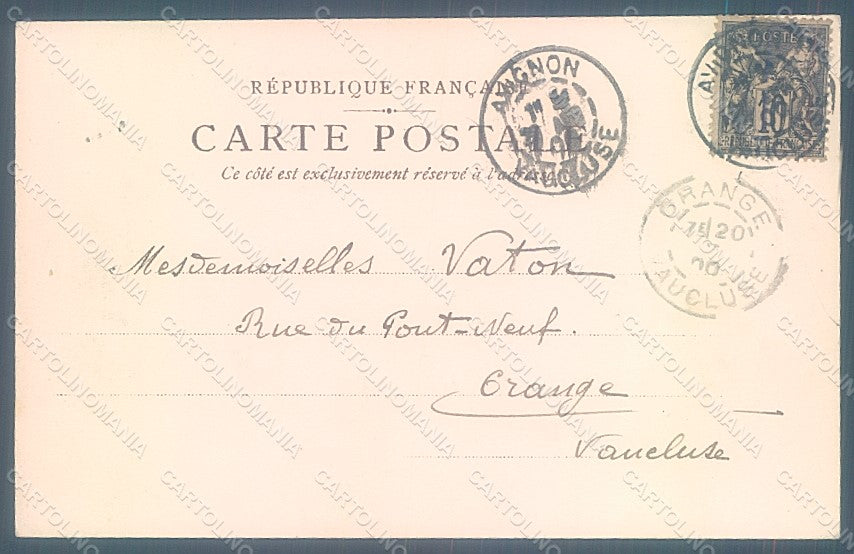 RÉPUBLIQUE FRANÇAISE
CARTE POSTALE
Ce côté est exclusivement réservé à l'adresse
AVIGNON
VAUCLUSE
AVIGNON
VAUCLUSE
POSTES
10
ORANGE
20
00
VAUCLUSE
Mesdemoiselles Vaton
Rue du Pont-Neuf.
Orange
Vaucluse
CARTOLINOMANIA